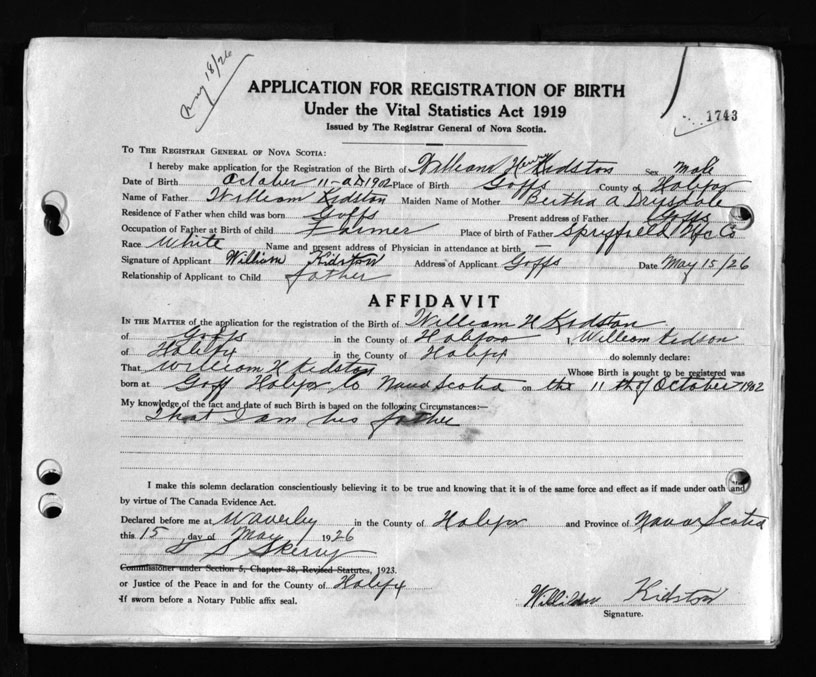 May 18/26
APPLICATION FOR REGISTRATION OF BIRTH
Under the Vital Statistics Act 1919
Issued by The Registrar General of Nova Scotia.
1743
TO THE REGISTRAR GENERAL OF NOVA SCOTIA:
I hereby make application for the Registration of the Birth of William Henry Kidston Sex Male
Date of Birth October 11 - AD 1902 Place of Birth Goffs County of Halifax
Name of Father William Kidston Maiden Name of Mother Bertha A Drysdale
Residence of Father when child was born Goffs Present address of Father Goffs
Occupation of Father at Birth of child Farmer Place of birth of Father Spryfield Hfx Co
Race White Name and present address of Physician in attendance at birth —
Signature of Applicant William Kidston Address of Applicant Goffs Date May 15/26
Relationship of Applicant to Child father
AFFIDAVIT
IN THE MATTER of the application for the registration of the Birth of William H Kidston
of Goffs in the County of Halifax I, William Kidson
of Halifx in the County of Halifx do solemnly declare:
That William H Kidston Whose Birth is sought to be registered was
born at Goff Halifax Co Nova Scotia on the 11 th of October 1902
My knowledge of the fact and date of such Birth is based on the following Circumstances:—
That I am his father
I make this solemn declaration conscientiously believing it to be true and knowing that it is of the same force and effect as if made under oath and
by virtue of The Canada Evidence Act.
Declared before me at Waverley in the County of Halifax and Province of Nova Scotia
this 15 day of May 1926
S Skerry
Commissioner under Section 5, Chapter 38, Revised Statutes, 1923.
or Justice of the Peace in and for the County of Halifx
If sworn before a Notary Public affix seal.
William Kidston
Signature.